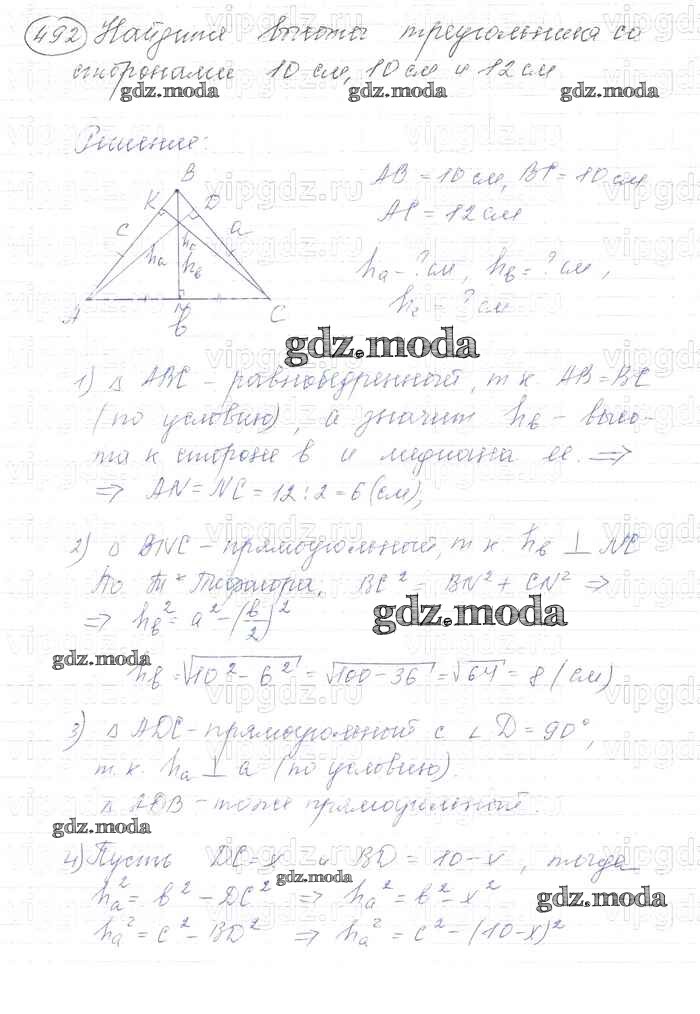 492 Найдите высоты треугольника со
сторонами 10 см, 10 см и 12 см.
gdz.moda gdz.moda gdz.moda
Решение:
B
K D
c a
ha hc hb
A N C
b
AB = 10 см, BC = 10 см
AC = 12 см
ha - ? см, hb = ? см,
hc - ? см
gdz.moda
1) Δ ABC - равнобедренный, т.к. AB = BC
(по условию), а значит hb - высо-
та к стороне b и медиана ее. ⇒
⇒ AN = NC = 12 : 2 = 6 (см),
2) Δ BNC - прямоугольный, т.к. hb ⊥ NC
По т. Пифагора, BC² = BN² + CN² ⇒
⇒ hb² = a² - (b/2)²
gdz.moda
gdz.moda
hb = √10² - 6² = √100 - 36 = √64 = 8 (см)
3) Δ ADC - прямоугольный с ∠D = 90°,
т.к. ha ⊥ a (по условию).
Δ ADB - тоже прямоугольный.
gdz.moda
4) Пусть DC = x и BD = 10 - x, тогда
gdz.moda
ha² = b² - DC² ⇒ ha² = b² - x²
gdz.moda
ha² = c² - BD² ⇒ ha² = c² - (10-x)²